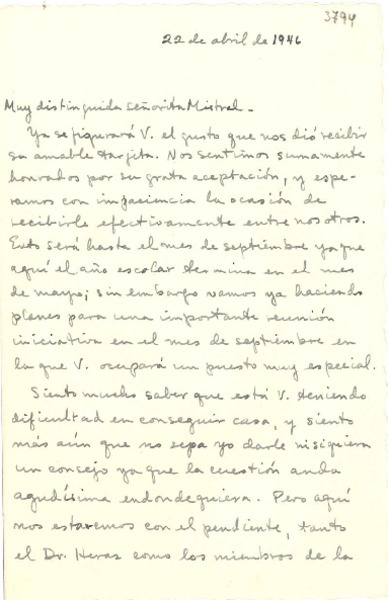 3794
22 de abril de 1946
Muy distinguida señorita Mistral -
Ya se figurará V. el gusto que nos dió recibir
su amable tarjita. Nos sentimos sumamente
honrados por su grata aceptación, y espe-
ramos con impaciencia la ocasión de
recibirle efectivamente entre nosotros.
Esto será hasta el mes de septiembre ya que
aquí el año escolar termina en el mes
de mayo; sin embargo vamos ya haciendo
planes para una importante reunión
iniciativa en el mes de septiembre en
la que V. ocupará un puesto muy especial.
Siento mucho saber que está V. teniendo
dificultad en conseguir casa, y siento
más aún que no sepa yo darle ni siquiera
un consejo ya que la cuestión anda
agudísima endondequiera. Pero aquí
nos estaremos con el pendiente, tanto
el Dr. Heras como los miembros de la